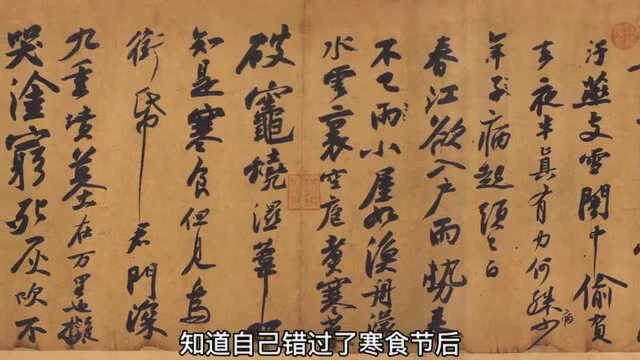 污燕支雪闇中偷負
去夜半真有力何殊少
病
年子病起頭已白
春江欲入戶雨勢來
不已雨小屋如漁舟濛
水雲裏空庖煮寒
破竈燒濕葦
知是寒食但見烏
銜帋君門深
九重墳墓在万里也擬
哭塗窮死灰吹不
知道自己错过了寒食节后